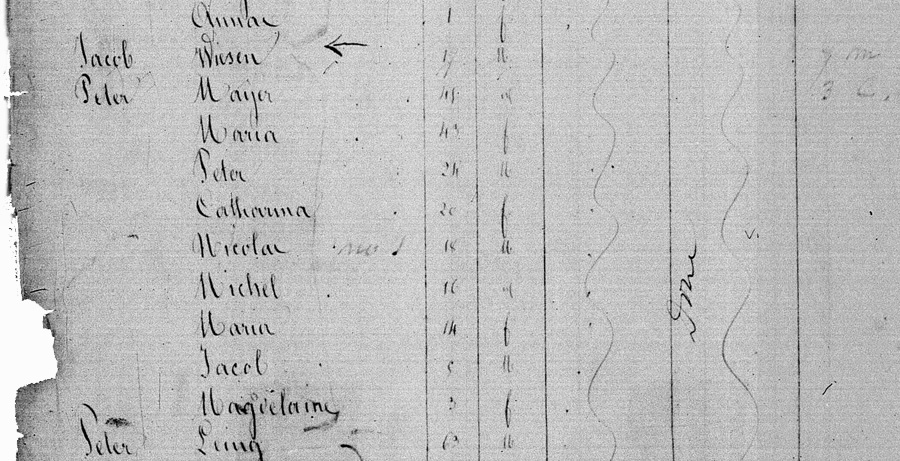 1 f
Jacob Wiesen 19 M
Peter Mayer 48 M
Maria 43 f
Peter 24 M
Catharina 20 f
Nicolai 18 M
Michel 16 M
Maria 14 f
Jacob M
Magdelaine 3 f
Peter M